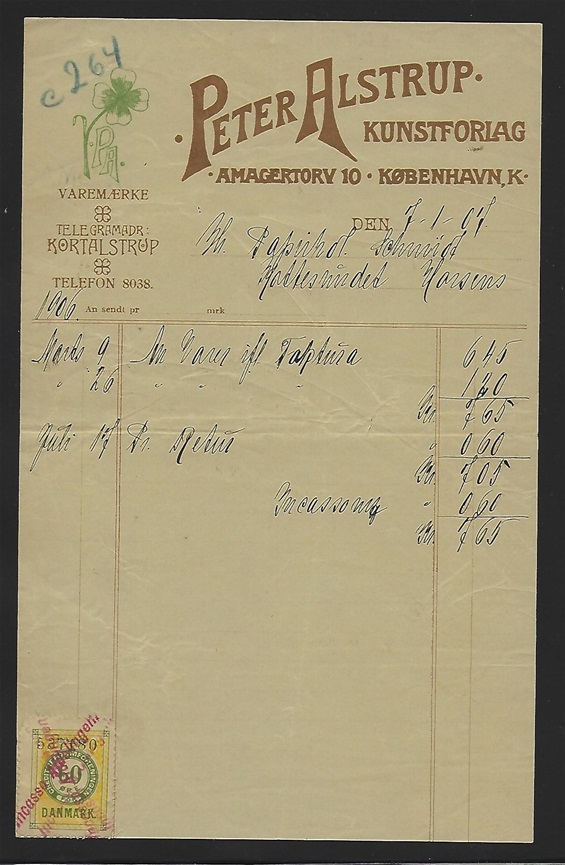 c 264
PETER ALSTRUP.
KUNSTFORLAG
AMAGERTORV 10 · KØBENHAVN, K.
PA
VAREMÆRKE
TELEGRAMADR:
KORTALSTRUP
TELEFON 8038.
DEN 7-1-07
Hr. Papirhdl. Schmidt
Hattesundet Horsens
1906. An sendt pr mrk
Marts 9 An Varer ift Faktura 6 45
" 26 " " " 1 20
Kr 7 65
Juli 17 Pr. Retur " 0 60
Kr 7 05
Incassomk " 0 60
Kr 7 65
60
ØRE
DANMARK.